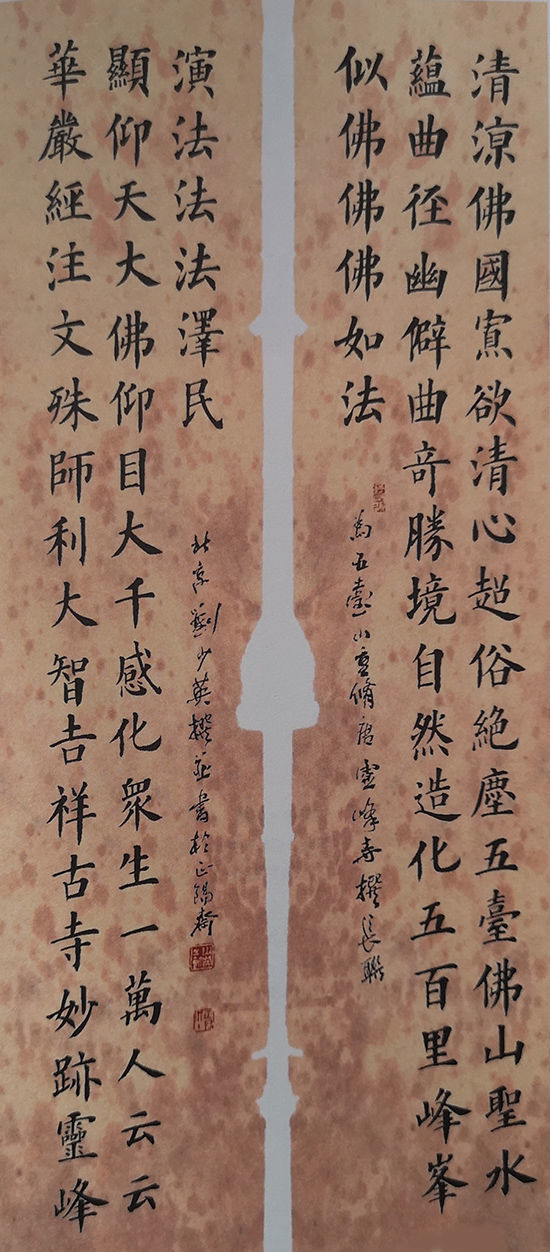 清涼佛國寡欲清心超俗絶塵五臺佛山聖水
蘊曲徑幽僻曲奇勝境自然造化五百里峰峯
似佛佛佛如法
為五臺山重脩唐靈峰寺撰長聯
華嚴經注文殊師利大智吉祥古寺妙跡靈峰
顯仰天大佛仰目大千感化衆生一萬人云云
演法法法澤民
北京劉少英撰並書於正陽齋